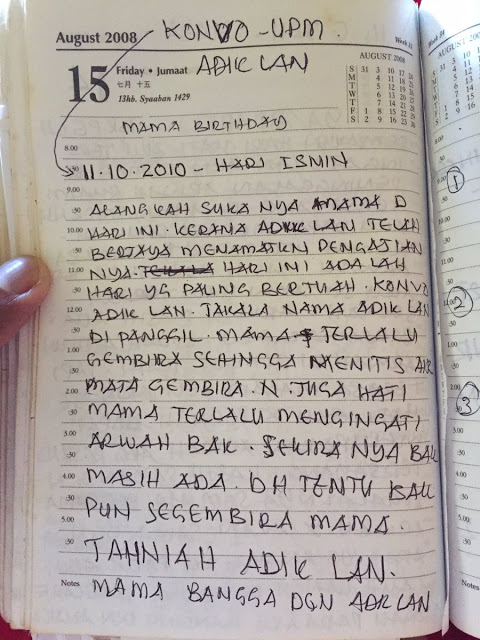 August 2008
KONVO - UPM.
Week 33
15
Friday • Jumaat
ADIK LAN
七月 十五
13hb. Syaaban 1429
AUGUST 2008
S 31 3 10 17 24
M 4 11 18 25
T 5 12 19 26
W 6 13 20 27
T 7 14 21 28
F 1 8 15 22 29
S 2 9 16 23 30
MAMA BIRTHDAY
8.00
:30 11.10.2010 - HARI ISNIN
9.00
:30 ALANGKAH SUKA NYA MAMA D
10.00 HARI INI. KERANA ADIK LAN TELAH
:30 BERJAYA MENAMATKN PENGAJIAN
11.00 NYA. HARI INI ADA LAH
:30 HARI YG PALING BERTUAH. KONVO
12.00 ADIK LAN. TAKALA NAMA ADIK LAN
:30 DI PANGGIL. MAMA TERLALU
1.00 GEMBIRA SEHINGGA MENITIS AIR
:30
2.00 MATA GEMBIRA. N. JUGA HATI
:30 MAMA TERLALU MENGINGATI
3.00 ARWAH BAK. SEKIRA NYA BAK
:30
4.00 MASIH ADA. DH TENTU BAK
:30
5.00 PUN SEGEMBIRA MAMA.
:30 TAHNIAH ADIK LAN.
Notes MAMA BANGGA DGN ADIK LAN
Week 34
AUGUST 200
S 31
M 4
T 5
W 6
T 7
F 1 8
S 2 9
9.00
1
2
2.00
3
Notes